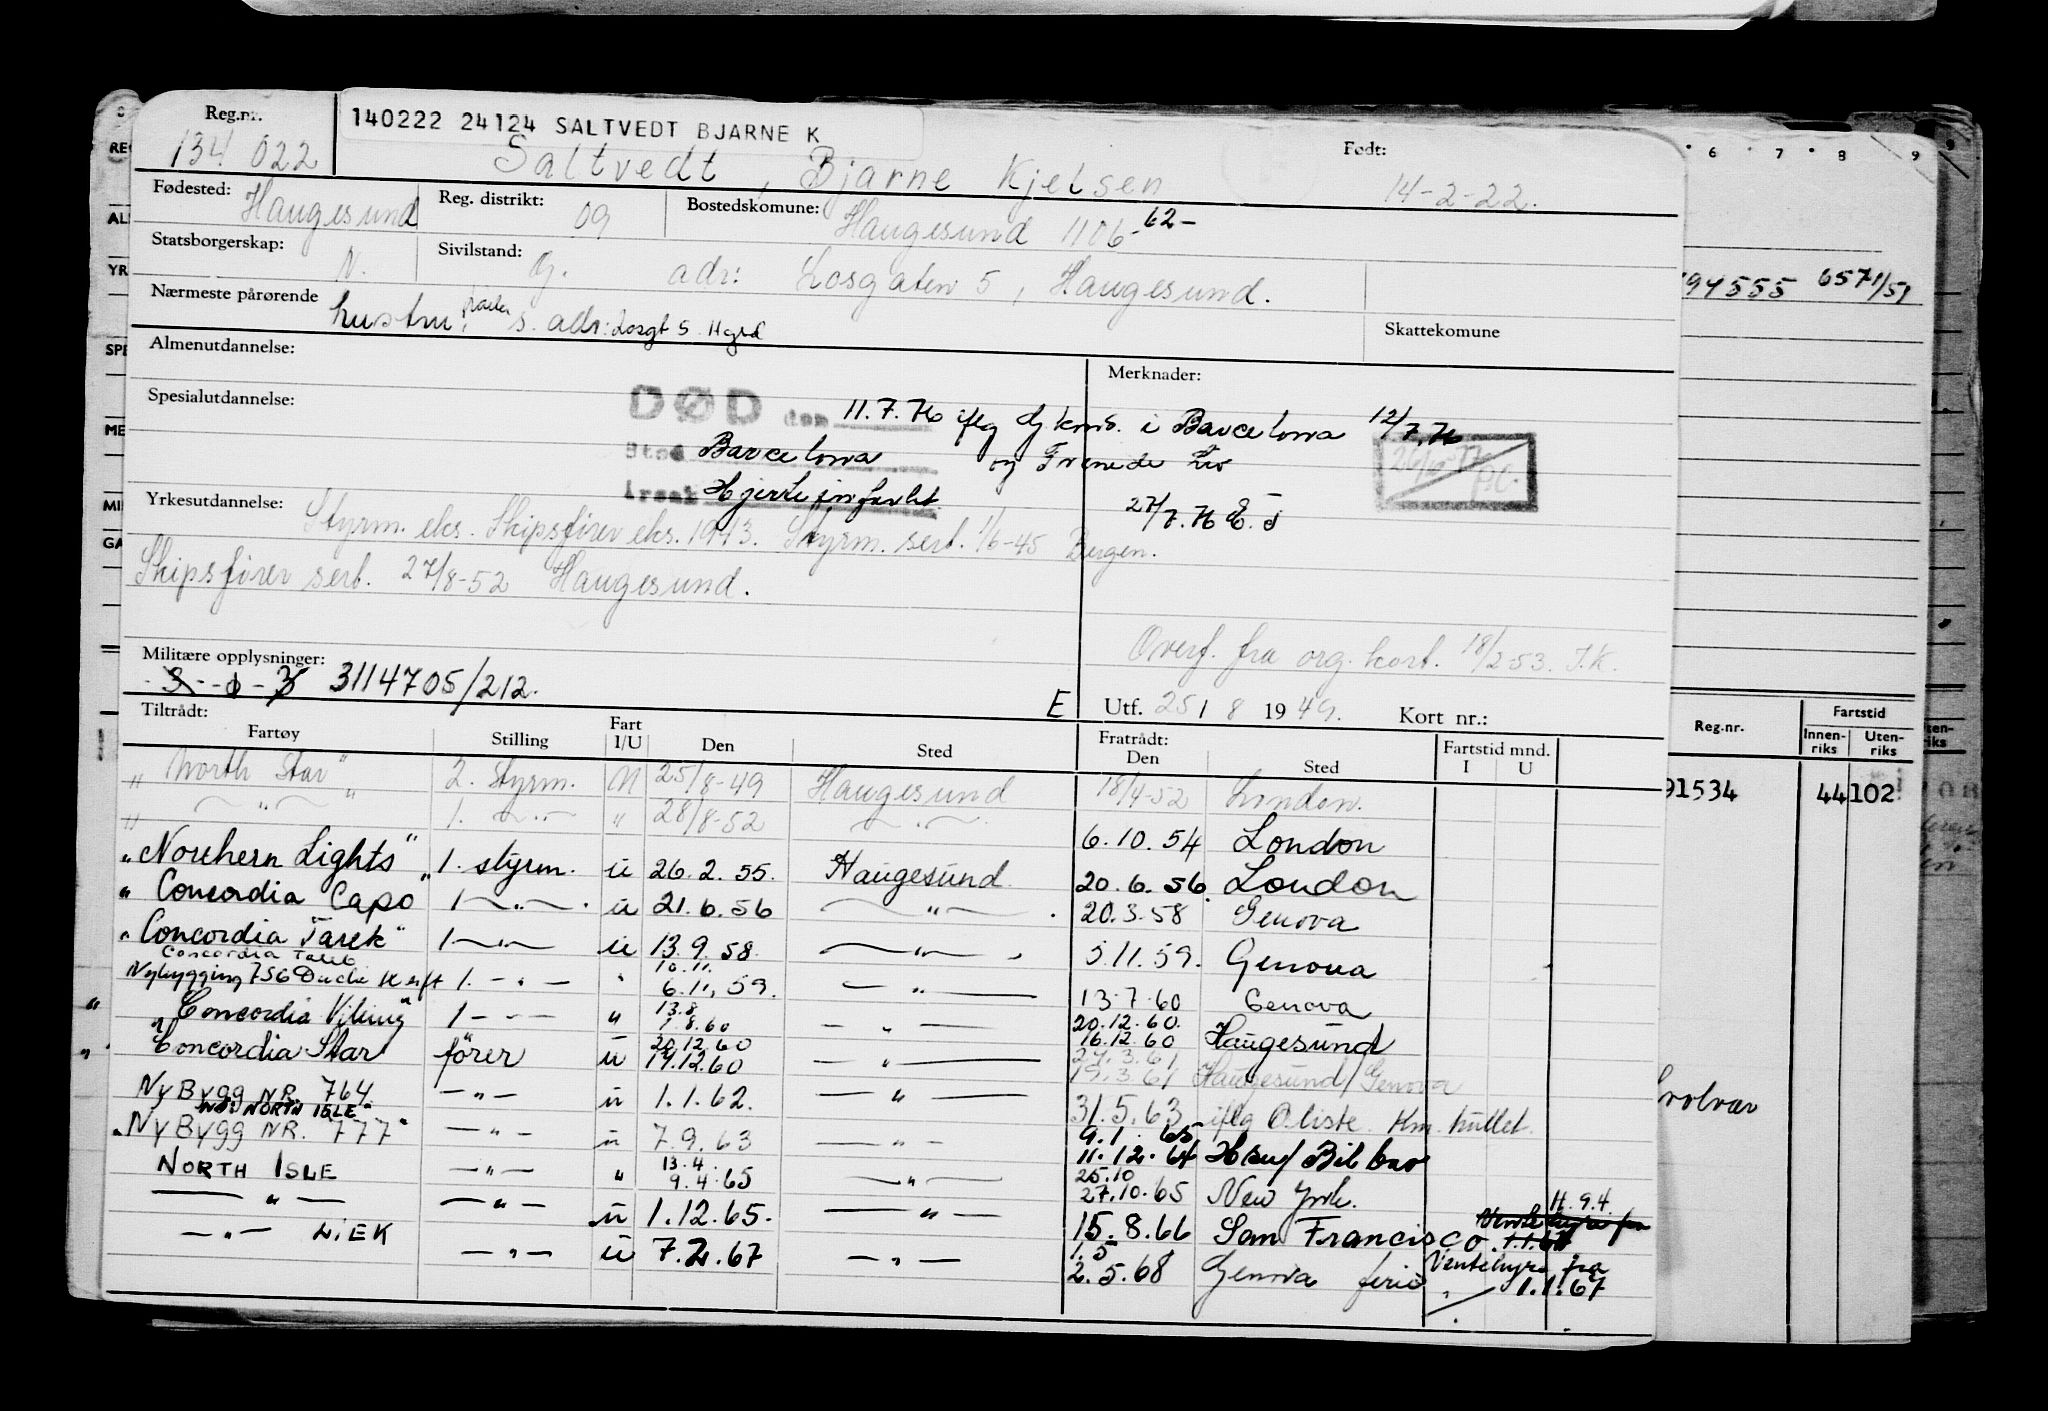 Reg.nr. 140222 24124 SALTVEDT BJARNE K Født:
134 022 Saltvedt, Bjarne Kjelsen 14-2-22.
Fødested: Haugesund Reg. distrikt: 09 Bostedskomune: Haugesund 1106-62-
Statsborgerskap: N. Sivilstand: G. adr: Losgaten 5, Haugesund.
Nærmeste pårørende hustru: s. adr: Losgt 5 Hgsd Skattekomune
Almenutdannelse: Merknader:
Spesialutdannelse: DØD den 11.7.76 iflg i Barcelona 12/7.76
Sted Barcelona og
årsak Hjerteinfarkt 27/7.76
Yrkesutdannelse: Styrm. eks. Skipsfører eks. 1943. Styrm. sert. 1/6-45 Bergen.
Skipsfører sert. 27/8-52 Haugesund.
Overf. fra org. kort. 18/2-53. J.K.
Militære opplysninger: 3114705/212.
E Utf. 25/8 1949. Kort nr.:
Tiltrådt: Fratrådt: Fartstid mnd.
Fartøy Stilling Fart I/U Den Sted Den Sted I U
"North Star" 2. Styrm. U 25/8-49 Haugesund 18/4-52 London.
" — " — " 1. — " — " 28/8-52 — " — 6.10.54 London
"Northern Lights" 1. styrm. U 26.2.55. Haugesund 20.6.56. London
"Concordia Capo" 1 — " — U 21.6.56 — " — 20.3.58 Genova
"Concordia Tarek" 1 — " — U 13.9.58. — " — 5.11.59. Genova
Concordia Taleb 10.11.
Nybygging 756 1. — " — " 6.11.59. — " — 13.7.60 Genova
"Concordia Viking" 1 — " — " 13.8 7.8.60 — " — 20.12.60. 16.12.60 Haugesund
"Concordia Star" fører U 20.12.60 17.12.60 — " — 27.3.61 19.3.61 Haugesund/Genova
Ny Bygg NR. 764. — " — U 1.1.62. — " — 31.5.63 iflg
"NORTH ISLE"
"Ny Bygg NR. 777" — " — U 7.9.63 — " — 9.1.65 11.12.64 Bilbao
NORTH ISLE — " — " 13.4. 9.4.65 — " — 25.10 27.10.65 New York.
— " — — " — U 1.12.65. — " — 15.8.66 San Francisco. 11.9.4.
— " — LIEK — " — U 7.2.67 — " — 1.5 2.5.68 Genova ferie Ventehyre fra 1.1.67
6 7 8 9
94555 6571/51
Reg.nr. Fartstid
Innenriks Utenriks
91534 44 102